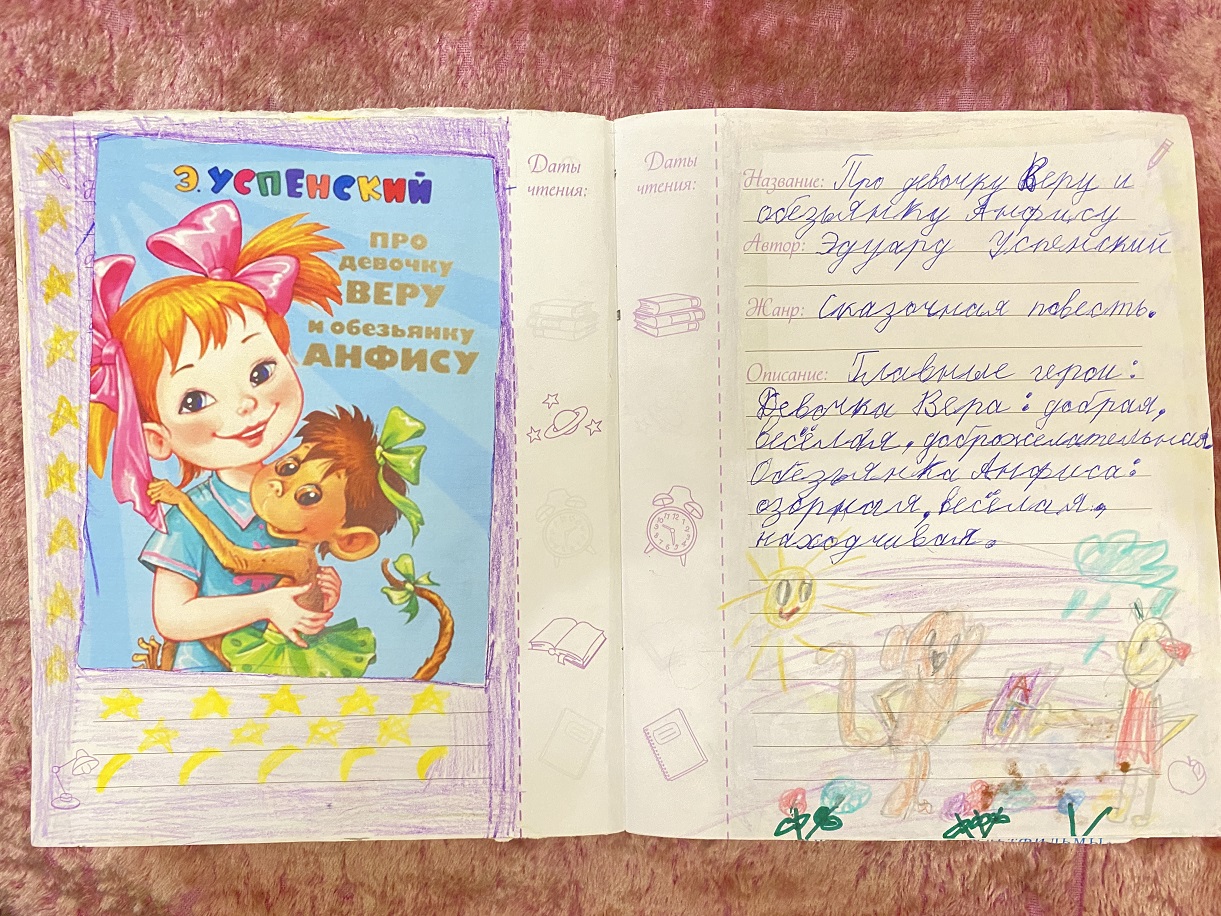 Э. УСПЕНСКИЙ
ПРО
ДЕВОЧКУ
ВЕРУ
И ОБЕЗЬЯНКУ
АНФИСУ
Даты
чтения:
Даты
чтения:
Название: Про девочку Веру и
обезьянку Анфису
Автор: Эдуард Успенский
Жанр: Сказочная повесть.
Описание: Главные герои:
Девочка Вера: добрая,
весёлая, доброжелательная
Обезьянка Анфиса:
озорная, весёлая,
находчивая.